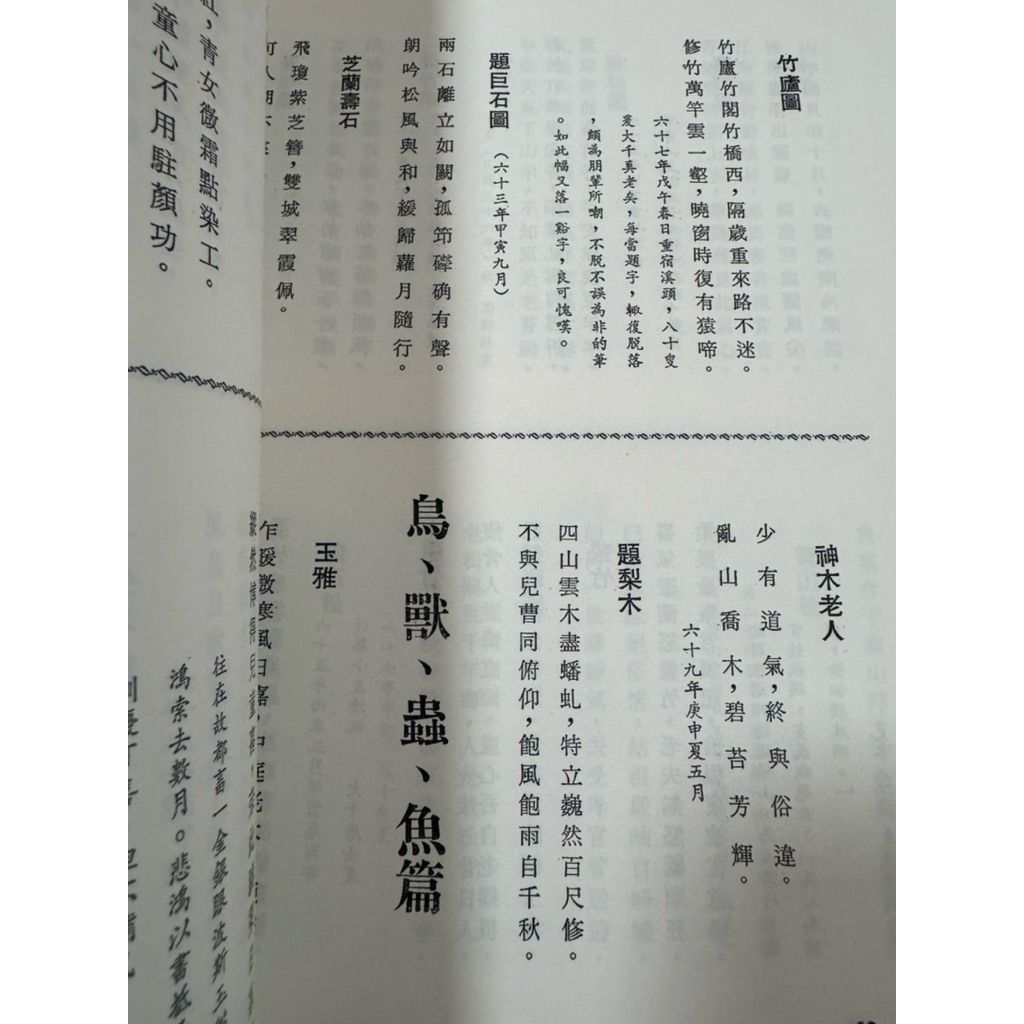 竹廬圖
竹廬竹閣竹橋西，隔歲重來路不迷。
修竹萬竿雲一壑，曉窗時復有猿啼。
六十七年戊午春日重宿溪頭，八十叟
爰大千真老矣，每當題字，輒復脫落
，頗為朋輩所嘲，不脫不誤為非的筆
。如此幅又落一谿字，良可愧嘆。
題巨石圖（六十三年甲寅九月）
兩石離立如闕，孤筇磔确有聲。
朗吟松風與和，緩歸蘿月隨行。
芝蘭壽石
飛瓊紫芝簪，雙城翠霞佩。
神木老人
少有道氣，終與俗違。
亂山喬木，碧苔芳輝。
六十九年庚申夏五月
題梨木
四山雲木盡蟠虬，特立巍然百尺修。
不與兒曹同俯仰，飽風飽雨自千秋。
鳥、獸、蟲、魚篇
玉雅
乍暖微寒風日嘉，中庭
紅，青女微霜點染工。
童心不用駐顏功。
往在故都畜一金銀眼波斯玉
鴻索去數月。悲鴻以書抵